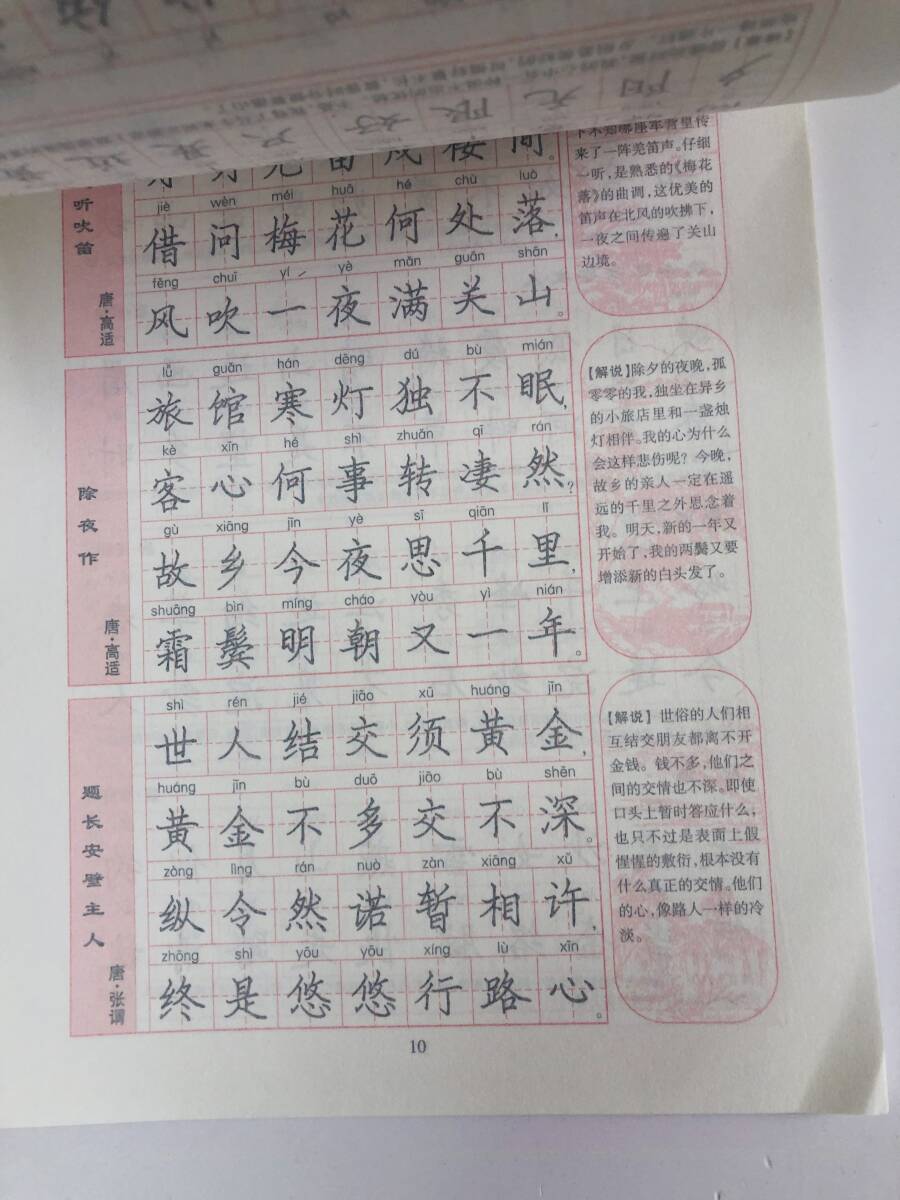 听吹笛
唐·高适
间。
jiè wèn méi huā hé chù luò
借问梅花何处落,
fēng chuī yí yè mǎn guān shān
风吹一夜满关山。
下不知哪座军营里传
来了一阵羌笛声。仔细
一听,是熟悉的《梅花
落》的曲调,这优美的
笛声在北风的吹拂下,
一夜之间传遍了关山
边境。
除夜作
唐·高适
lǚ guǎn hán dēng dú bù mián
旅馆寒灯独不眠,
kè xīn hé shì zhuǎn qī rán
客心何事转凄然?
gù xiāng jīn yè sī qiān lǐ
故乡今夜思千里,
shuāng bìn míng zhāo yòu yì nián
霜鬓明朝又一年。
【解说】除夕的夜晚,孤
零零的我,独坐在异乡
的小旅店里和一盏烛
灯相伴。我的心为什么
会这样悲伤呢?今晚,
故乡的亲人一定在遥
远的千里之外思念着
我。明天,新的一年又
开始了,我的两鬓又要
增添新的白头发了。
题长安壁主人
唐·张谓
shì rén jié jiāo xū huáng jīn
世人结交须黄金,
huáng jīn bù duō jiāo bù shēn
黄金不多交不深。
zòng lìng rán nuò zàn xiāng xǔ
纵令然诺暂相许,
zhōng shì yōu yōu xíng lù xīn
终是悠悠行路心。
【解说】世俗的人们相
互结交朋友都离不开
金钱。钱不多,他们之
间的交情也不深。即使
口头上暂时答应什么,
也只不过是表面上假
惺惺的敷衍,根本没有
什么真正的交情。他们
的心,像路人一样的冷
淡。
10